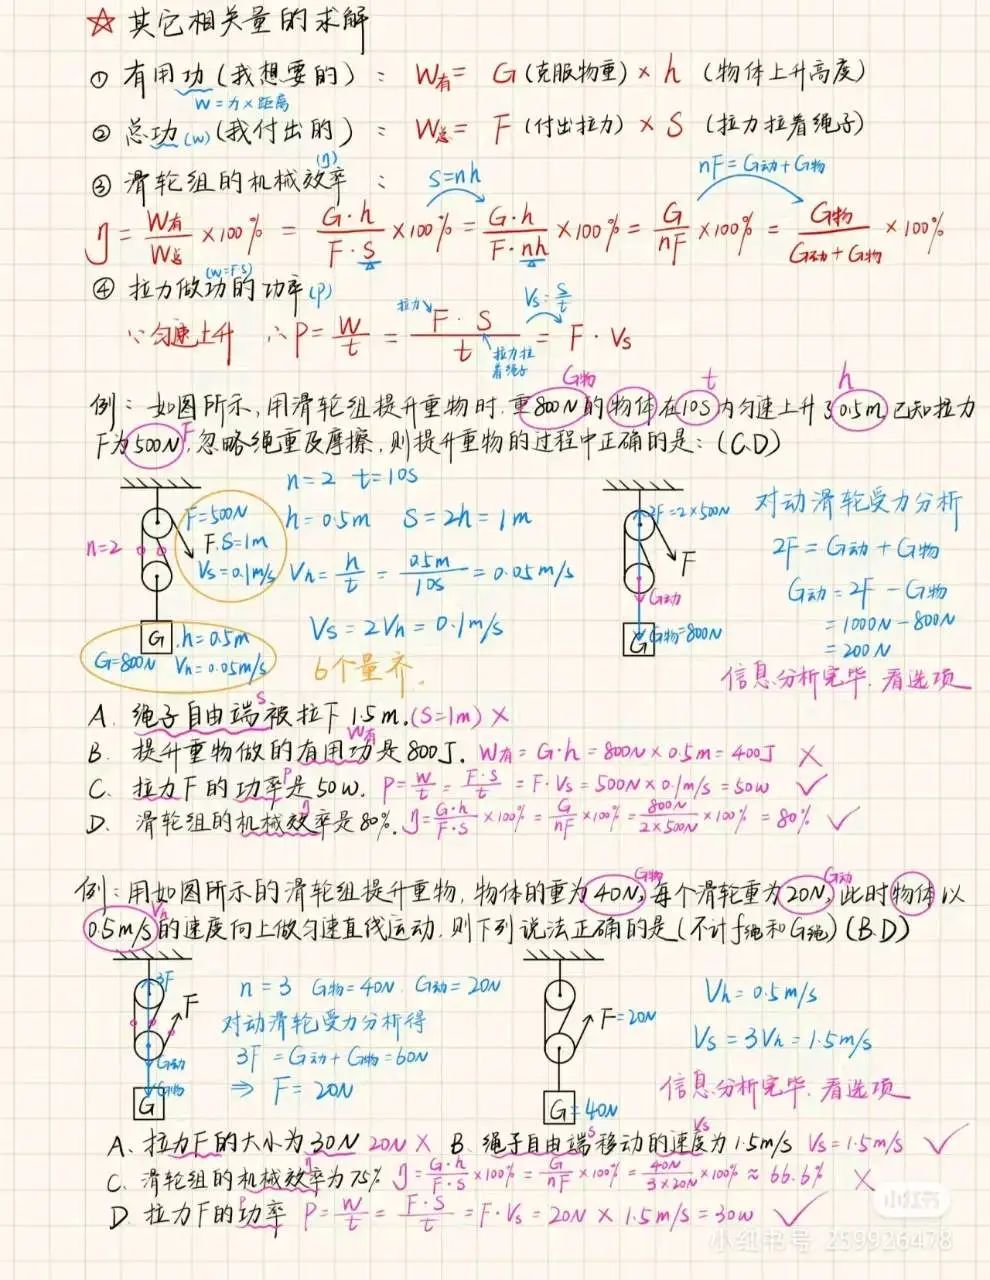 ☆ 其它相关量的求解
① 有用功(我想要的): W有= G(克服物重)×h (物体上升高度)
W=力×距离
② 总功(W)(我付出的): W总= F(付出拉力)×S (拉力拉着绳子)
③ 滑轮组的机械效率(η): S=nh nF=G动+G物
η=W有/W总×100%=G·h/F·S×100%=G·h/F·nh×100%=G/nF×100%=G物/G动+G物×100%
(W=FS)
④ 拉力做功的功率(P) 拉力 Vs=S/t
∵匀速上升 ∴P=W/t=F·S/t=F·Vs
拉力拉着绳子
G物 t h
例:如图所示,用滑轮组提升重物时,重800N的物体在10S内匀速上升了0.5m,已知拉力
F为500N,F忽略绳重及摩擦,则提升重物的过程中正确的是:(C.D)
n=2 t=10S
h=0.5m S=2h=1m
Vh=h/t=0.5m/10S=0.05m/s
Vs=2Vh=0.1m/s
6个量齐.
n=2
F=500N
F.S=1m
Vs=0.1m/s
G .h=0.5m
G=800N Vh=0.05m/s
2F=2×500N
F
G动
G物=800N
G
对动滑轮受力分析
2F=G动+G物
G动=2F-G物
=1000N-800N
=200N
信息分析完毕.看选项
A. 绳子自由端S被拉下1.5m.(S=1m) ×
B. 提升重物做的有用功W有是800J. W有=G·h=800N×0.5m=400J ×
C. 拉力F的功率P是50W. P=W/t=F·S/t=F·Vs=500N×0.1m/s=50W ✓
D. 滑轮组的机械效率η是80%. η=G·h/F·S×100%=G/nF×100%=800N/2×500N×100%=80% ✓
G物 G动
例:用如图所示的滑轮组提升重物,物体的重为40N,每个滑轮重为20N,此时物体以
Vh
0.5m/s的速度向上做匀速直线运动.则下列说法正确的是(不计f绳和G绳)(B.D)
3F
F
G动
G物
G
n=3 G物=40N. G动=20N
对动滑轮受力分析得
3F=G动+G物=60N
⇒ F=20N
F=20N
G=40N
Vh=0.5m/s
Vs=3Vh=1.5m/s
信息分析完毕.看选项
A. 拉力F的大小为30N 20N × B. 绳子自由端S移动的速度Vs为1.5m/s Vs=1.5m/s ✓
C. 滑轮组的机械效率η为75% η=G·h/F·S×100%=G/nF×100%=40N/3×20N×100%≈66.6% ×
D. 拉力F的功率 P=W/t=F·S/t=F·Vs=20N×1.5m/s=30W ✓
小红书
小红书号 259926478